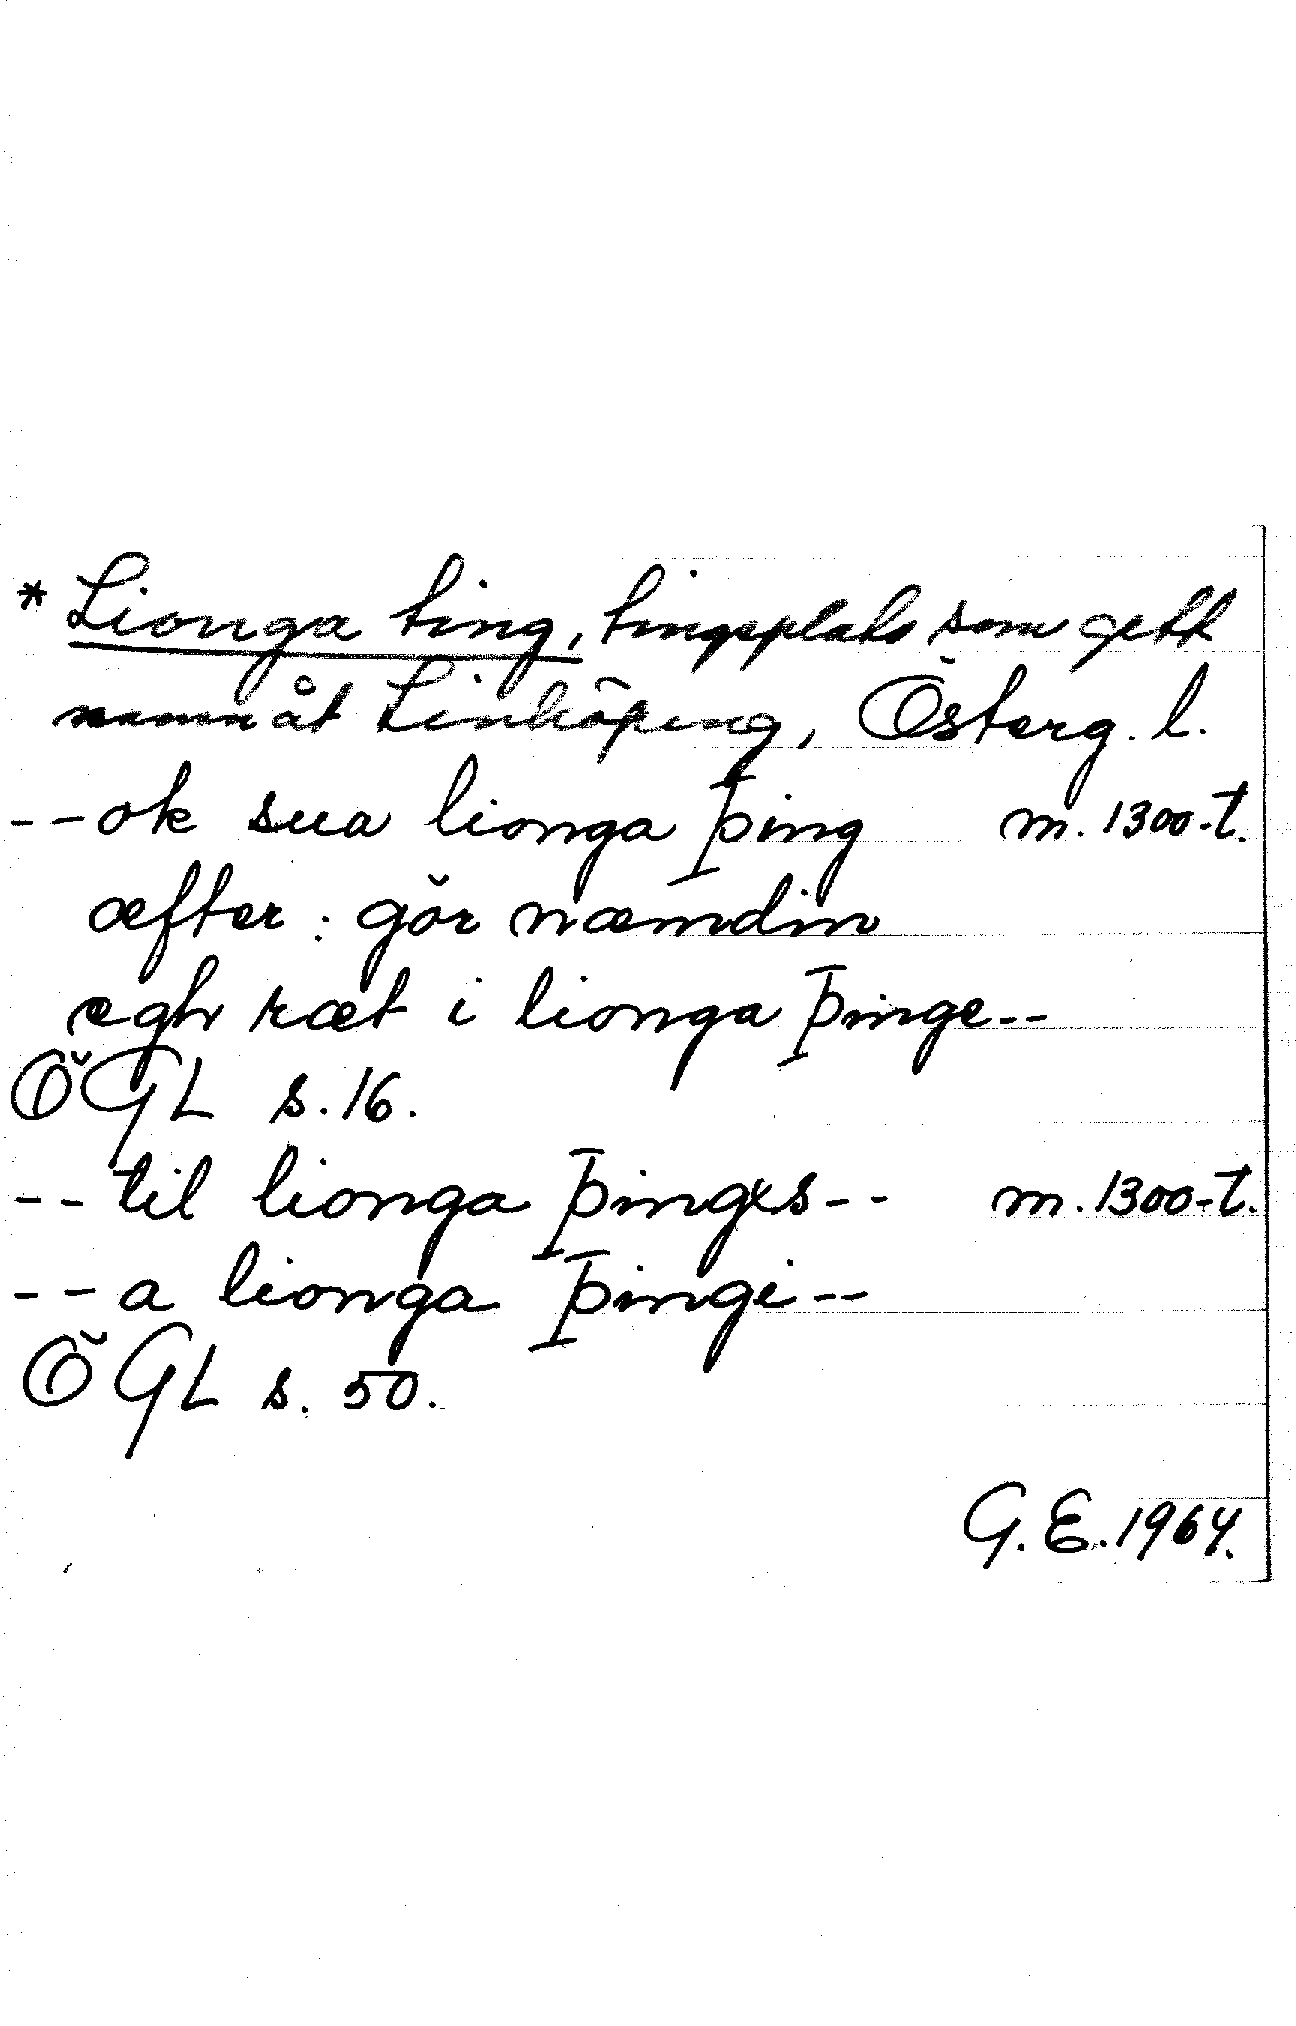 * Lionga ting, tingsplats som gett
namn åt Linköping, Österg. l.
--ok sua lionga þing m. 1300-t.
æfter: gör næmdin
egh ræt i lionga þinge--
ÖGL s. 16.
--til lionga þingxs-- m. 1300-t.
--a lionga þingi--
ÖGL s. 50.
G.E. 1964.